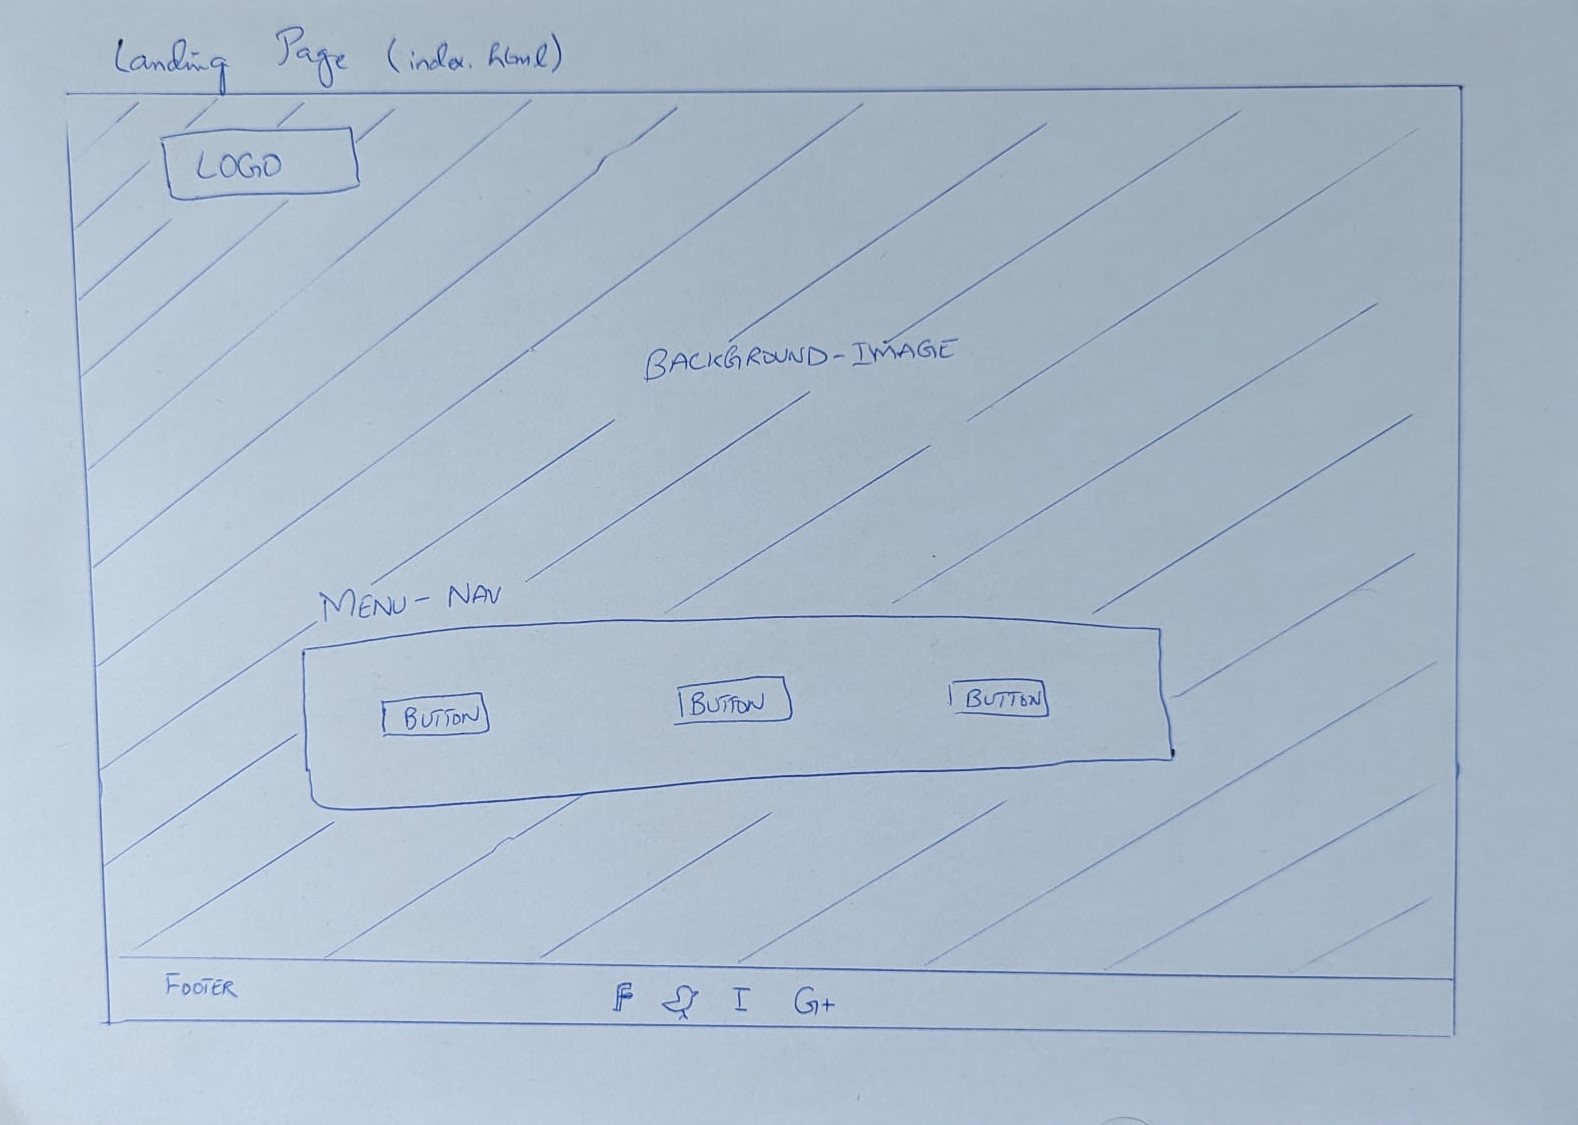 Landing Page (index.html)
LOGO
BACKGROUND-IMAGE
MENU-NAV
BUTTON BUTTON BUTTON
FOOTER F I G+